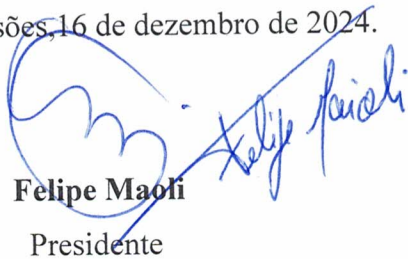 sões,16 de dezembro de 2024.
Felipe Maioli
Felipe Maoli
Presidente